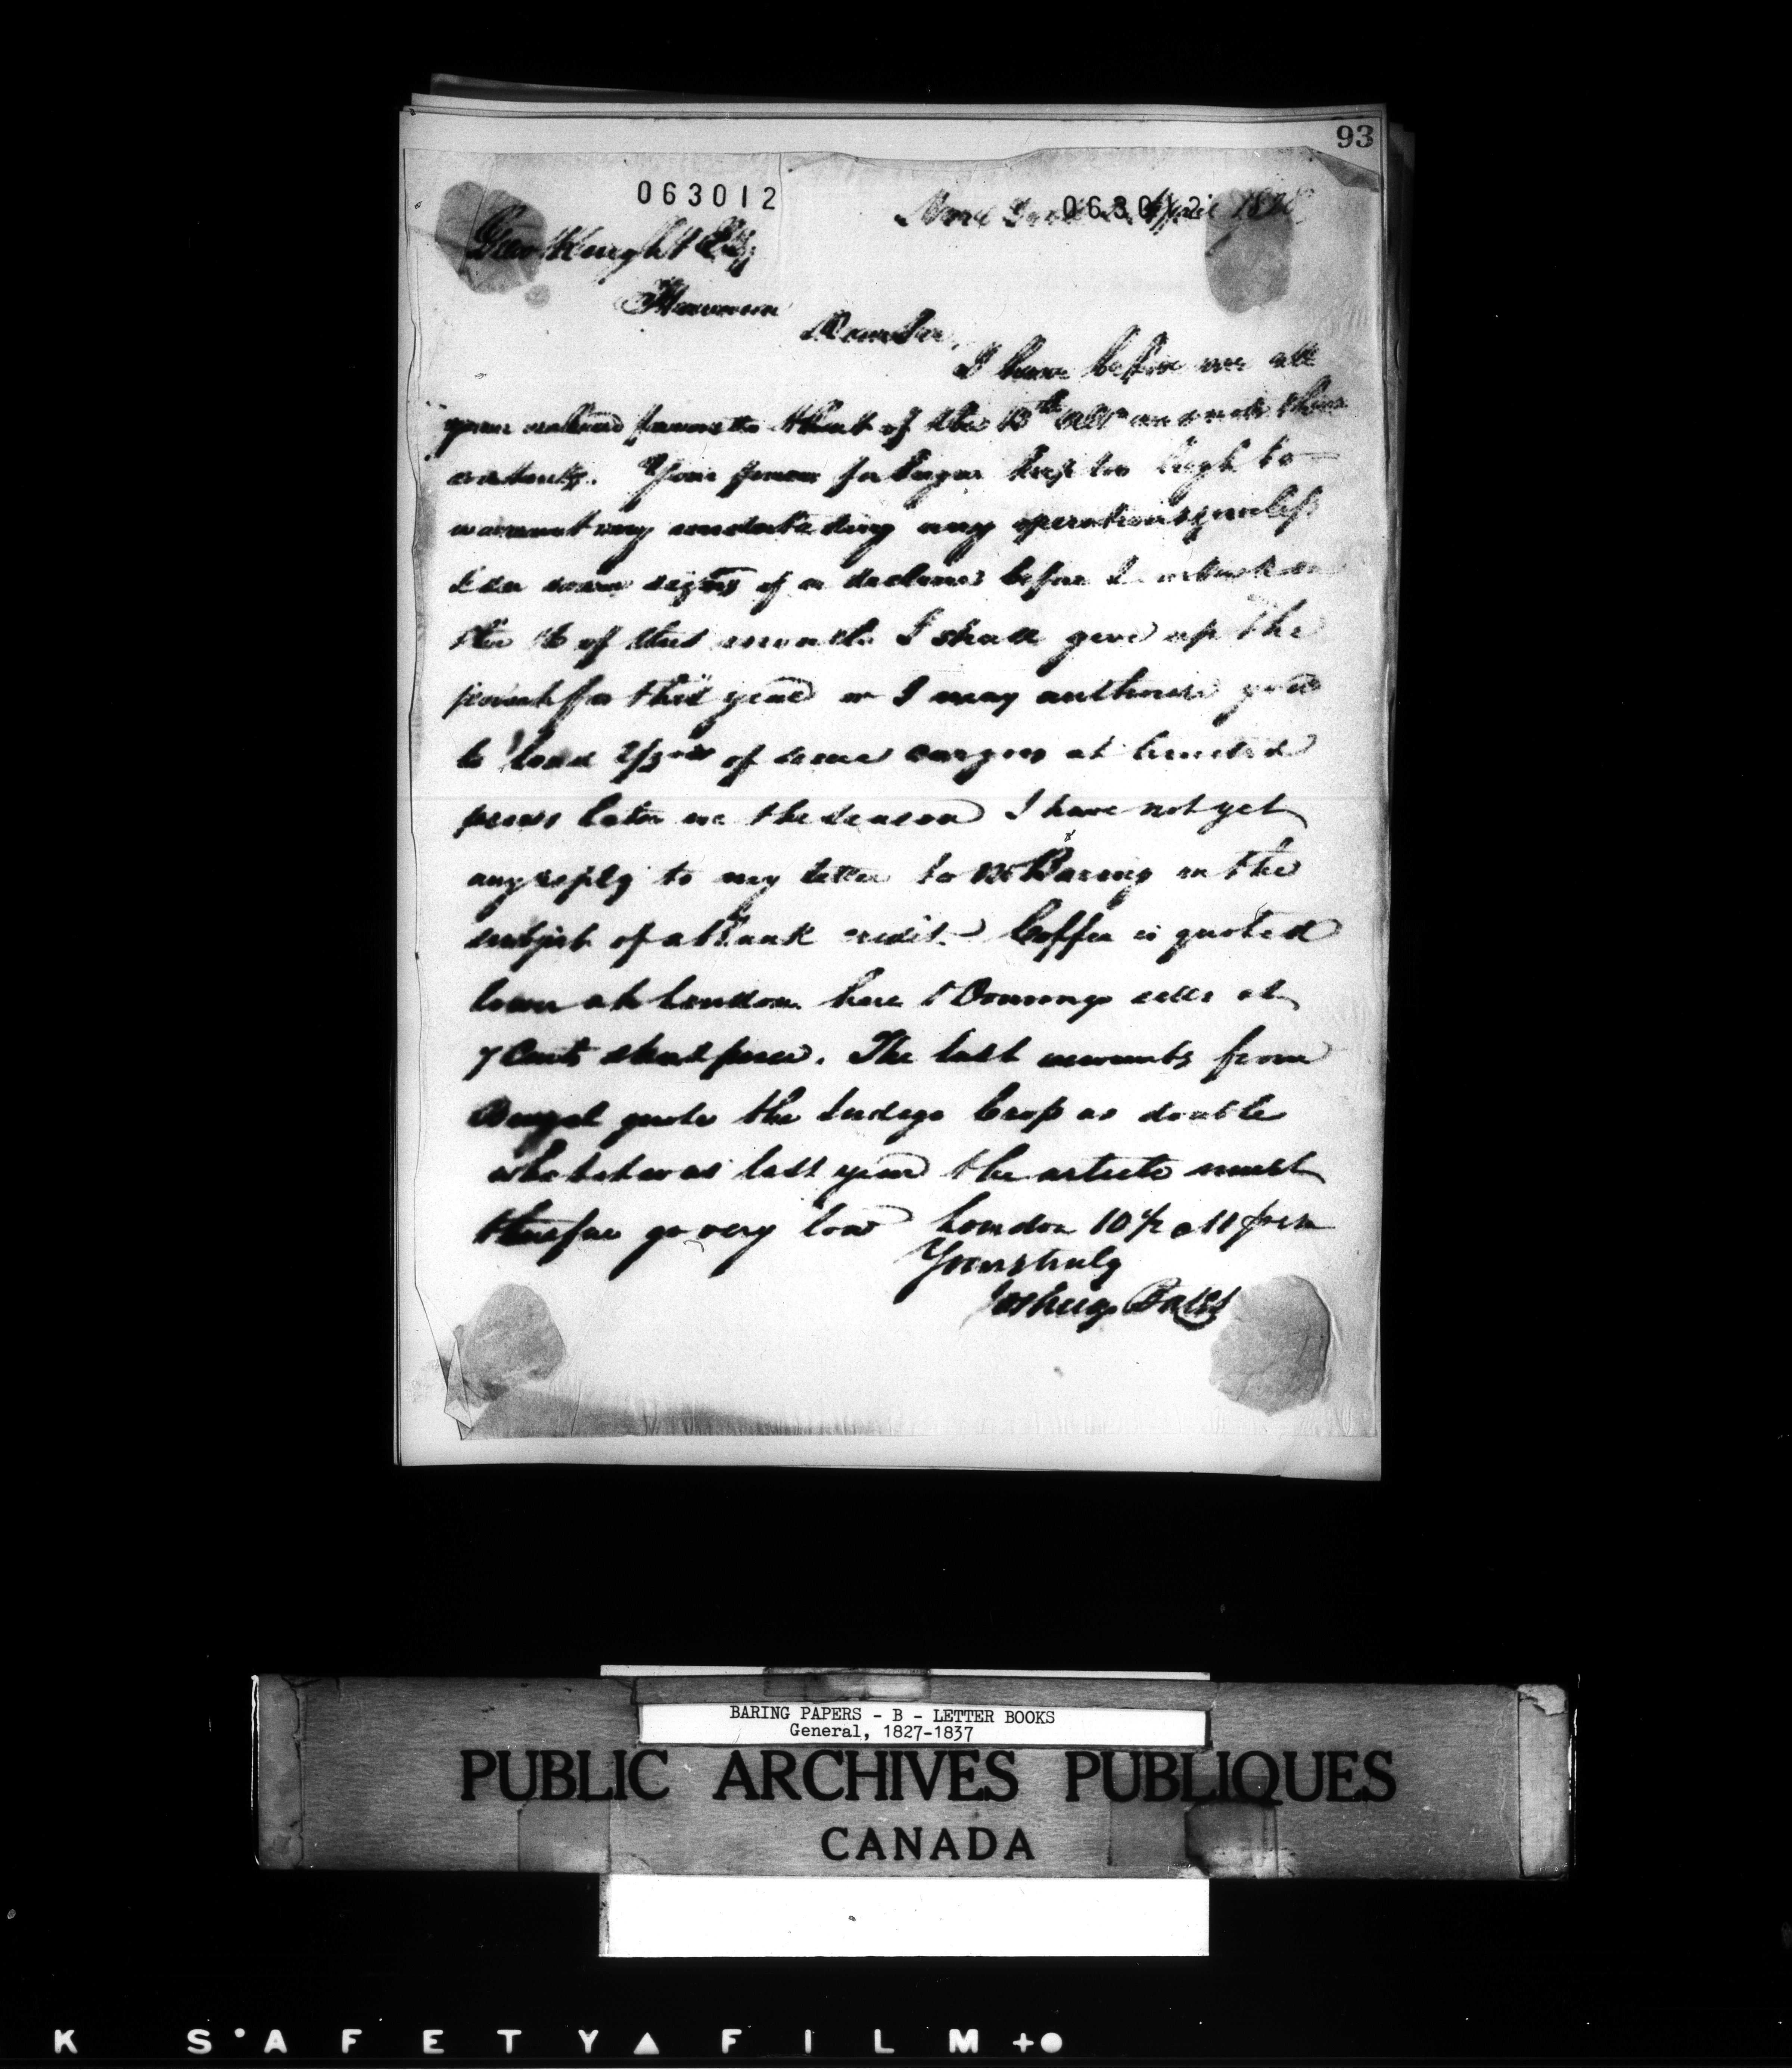 93
063012
063012
New York April 1828
Geo Knight Esq
Havana
Dear Sir,
I have before me all
your valued favors to that of the 13th ulto and note their
contents. Your prices for Sugar keep too high to
warrant my undertaking any operations, unless
I see some signs of a decline before I embark on
the 16 of this month I shall give up the
for this year or I may authorise you
to load 2/3rds of some cargoes at limited
prices later in the season I have not yet
any reply to my letter to Baring on the
subject of a Bank credit. Coffee is quoted
lower at London here St Domingo sells at
7 Cents short price. The last accounts from
Bengal quote the Indigo Crop as double
what it was last year the article must
therefore go very low London 10 1/2 a 11
Yours truly
Joshua Bates
BARING PAPERS - B - LETTER BOOKS
General, 1827-1837
PUBLIC ARCHIVES PUBLIQUES
CANADA
K SAFETY FILM